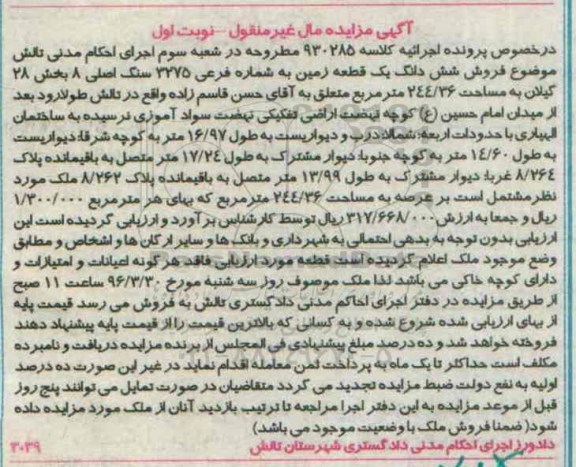 آگهی مزایده مال غیرمنقول - نوبت اول
درخصوص پرونده اجرائیه کلاسه ۹۳۰۲۸۵ مطروحه در شعبه سوم اجرای احکام مدنی تالش
موضوع فروش شش دانگ یک قطعه زمین به شماره فرعی ۳۲۷۵ سنگ اصلی ۸ بخش ۲۸
گیلان به مساحت ۲۴۴/۳۶ متر مربع متعلق به آقای حسن قاسم زاده واقع در تالش طولارود بعد
از میدان امام حسین (ع) کوچه نهضت اراضی تفکیکی نهضت سواد آموزی نرسیده به ساختمان
الهیاری با حدودات اربعه: شمالا: درب و دیواریست به طول ۱۶/۹۷ متر به کوچه شرقا: دیواریست
به طول ۱۴/۶۰ متر به کوچه جنوبا: دیوار مشترک به طول ۱۷/۲۴ متر متصل به باقیمانده پلاک
۸/۲۶۴ غربا: دیوار مشترک به طول ۱۳/۹۹ متر متصل به باقیمانده پلاک ۸/۲۶۲ ملک مورد
نظر مشتمل است بر عرصه به مساحت ۲۴۴/۳۶ مترمربع که بهای هر مترمربع ۱/۳۰۰/۰۰۰
ریال و جمعا به ارزش ۳۱۷/۶۶۸/۰۰۰ ریال توسط کارشناس برآورد و ارزیابی گردیده است این
ارزیابی بدون توجه به بدهی احتمالی به شهرداری و بانک ها و سایر ارگان ها و اشخاص و مطابق
وضع موجود ملک اعلام گردیده است قطعه مورد ارزیابی فاقد هر گونه اعیانات و امتیازات و
دارای کوچه خاکی می باشد لذا ملک موصوف روز سه شنبه مورخ ۹۶/۳/۳۰ ساعت ۱۱ صبح
از طریق مزایده در دفتر اجرای احاکم مدنی دادگستری تالش به فروش می رسد قیمت پایه
از بهای ارزیابی شده شروع شده و به کسانی که بالاترین قیمت را از قیمت پایه پیشنهاد دهند
فروخته خواهد شد و ده درصد مبلغ پیشنهادی فی المجلس از برنده مزایده دریافت و نامبرده
مکلف است حداکثر تا یک ماه به پرداخت ثمن معامله اقدام نماید در غیر این صورت ده درصد
اولیه به نفع دولت ضبط مزایده تجدید می گردد متقاضیان در صورت تمایل می توانند پنج روز
قبل از موعد مزایده به این دفتر اجرا مراجعه تا ترتیب بازدید آنان از ملک مورد مزایده داده
شود( ضمنا فروش ملک با وضعیت موجود می باشد)
دادورز اجرای احکام مدنی دادگستری شهرستان تالش ۳۰۳۹